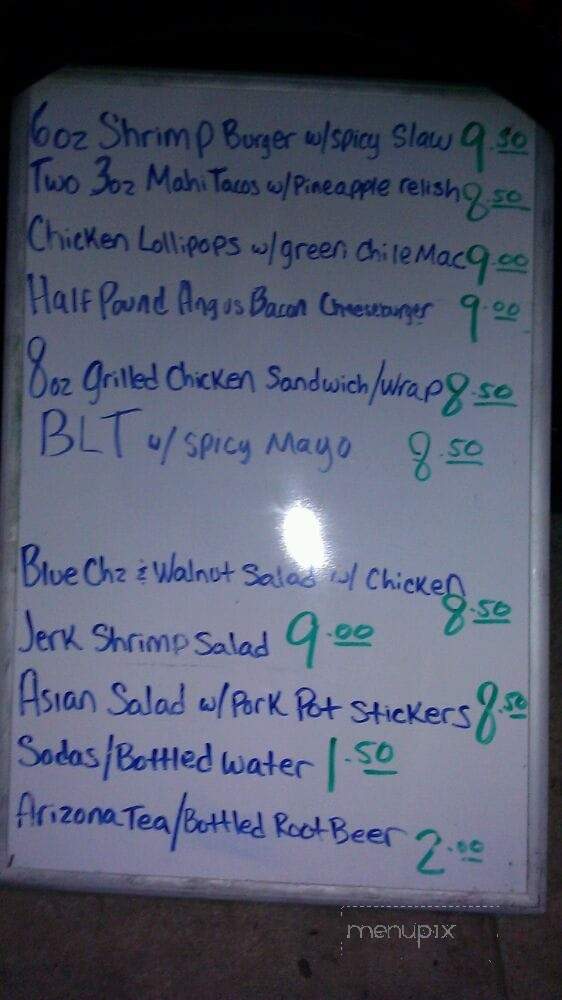 6oz Shrimp Burger w/spicy Slaw 9.50
Two 3oz Mahi Tacos w/Pineapple relish 8.50
Chicken Lollipops w/green chile Mac 9.00
Half Pound Angus Bacon Cheeseburger 9.00
8oz grilled Chicken Sandwich/wrap 8.50
BLT w/ spicy Mayo 8.50
Blue Chz & Walnut Salad w/ Chicken
8.50
Jerk Shrimp Salad 9.00
Asian Salad w/Pork Pot Stickers 8.50
Sodas/Bottled water 1.50
Arizona Tea/Bottled Root Beer 2.00
menupix